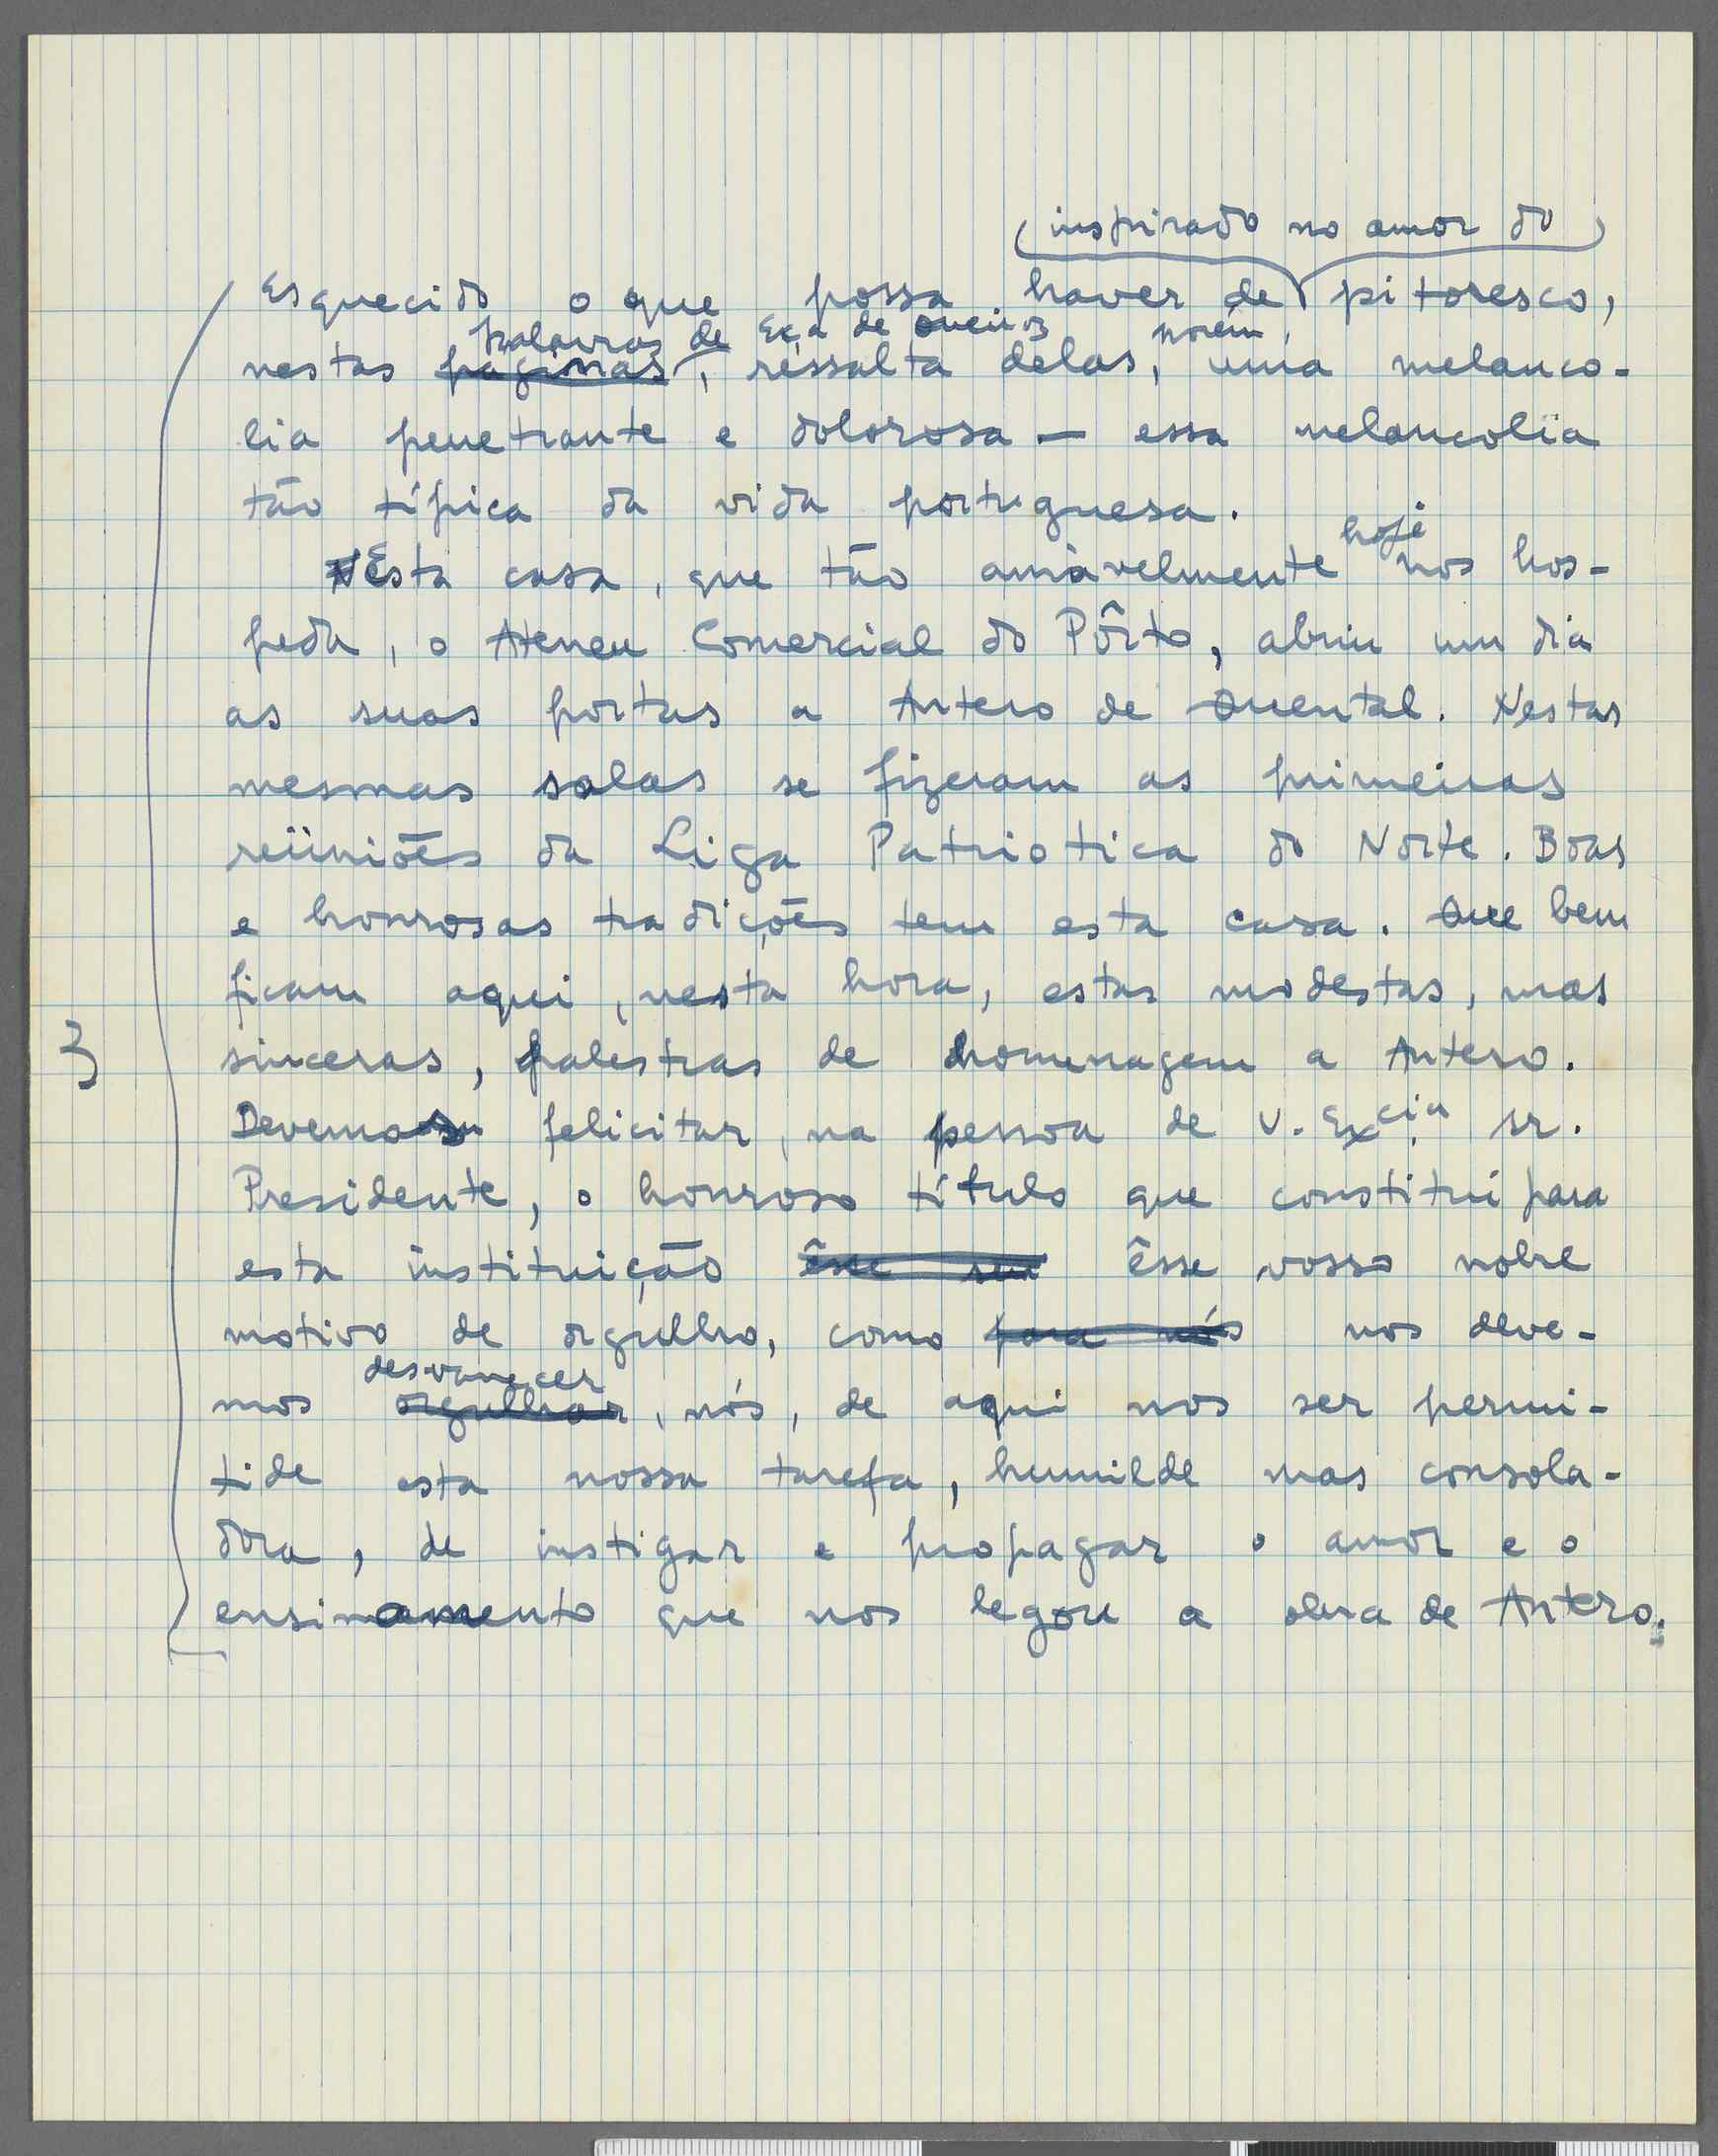 (inspirado no amor do)
Esquecido o que possa haver de pitoresco,
palavras de Eça de Queiroz porém,
nestas páginas, ressalta delas, uma melanco-
lia penetrante e dolorosa — essa melancolia
tão típica da vida portuguesa.
hoje
Esta casa, que tão amàvelmente nos hos-
peda, o Ateneu Comercial do Pôrto, abriu um dia
as suas portas a Antero de Quental. Nestas
mesmas salas se fizeram as primeiras
reüniões da Liga Patriotica do Norte. Boas
e honrosas tradições tem esta casa. Que bem
ficam aqui, nesta hora, estas modestas, mas
3
sinceras, palestras de homenagem a Antero.
Devemos felicitar, na pessoa de V. Excia. sr.
Presidente, o honroso título que constitui para
esta instituição êsse seu êsse vosso nobre
motivo de orgulho, como para nós nos deve-
desvanecer
mos orgulhar, nós, de aqui nos ser permi-
tide esta nossa tarefa, humilde mas consola-
dora, de instigar e propagar o amor e o
ensinamento que nos legou a obra de Antero.